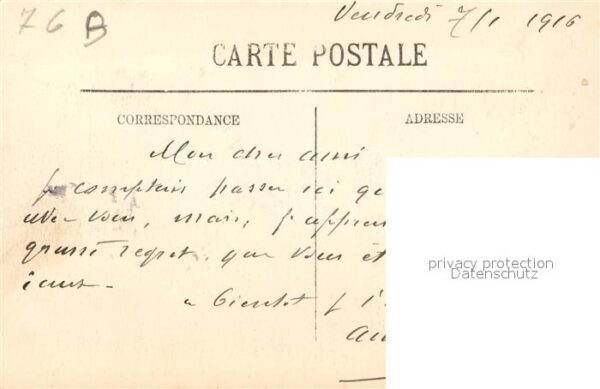 76 B
Vendredi 7/1 1916
CARTE POSTALE
CORRESPONDANCE
ADRESSE
Mon cher ami
Je comptais passer ici
avec vous, mais, j'appren
grand regret, que vous êt
à bientôt j
privacy protection
Datenschutz